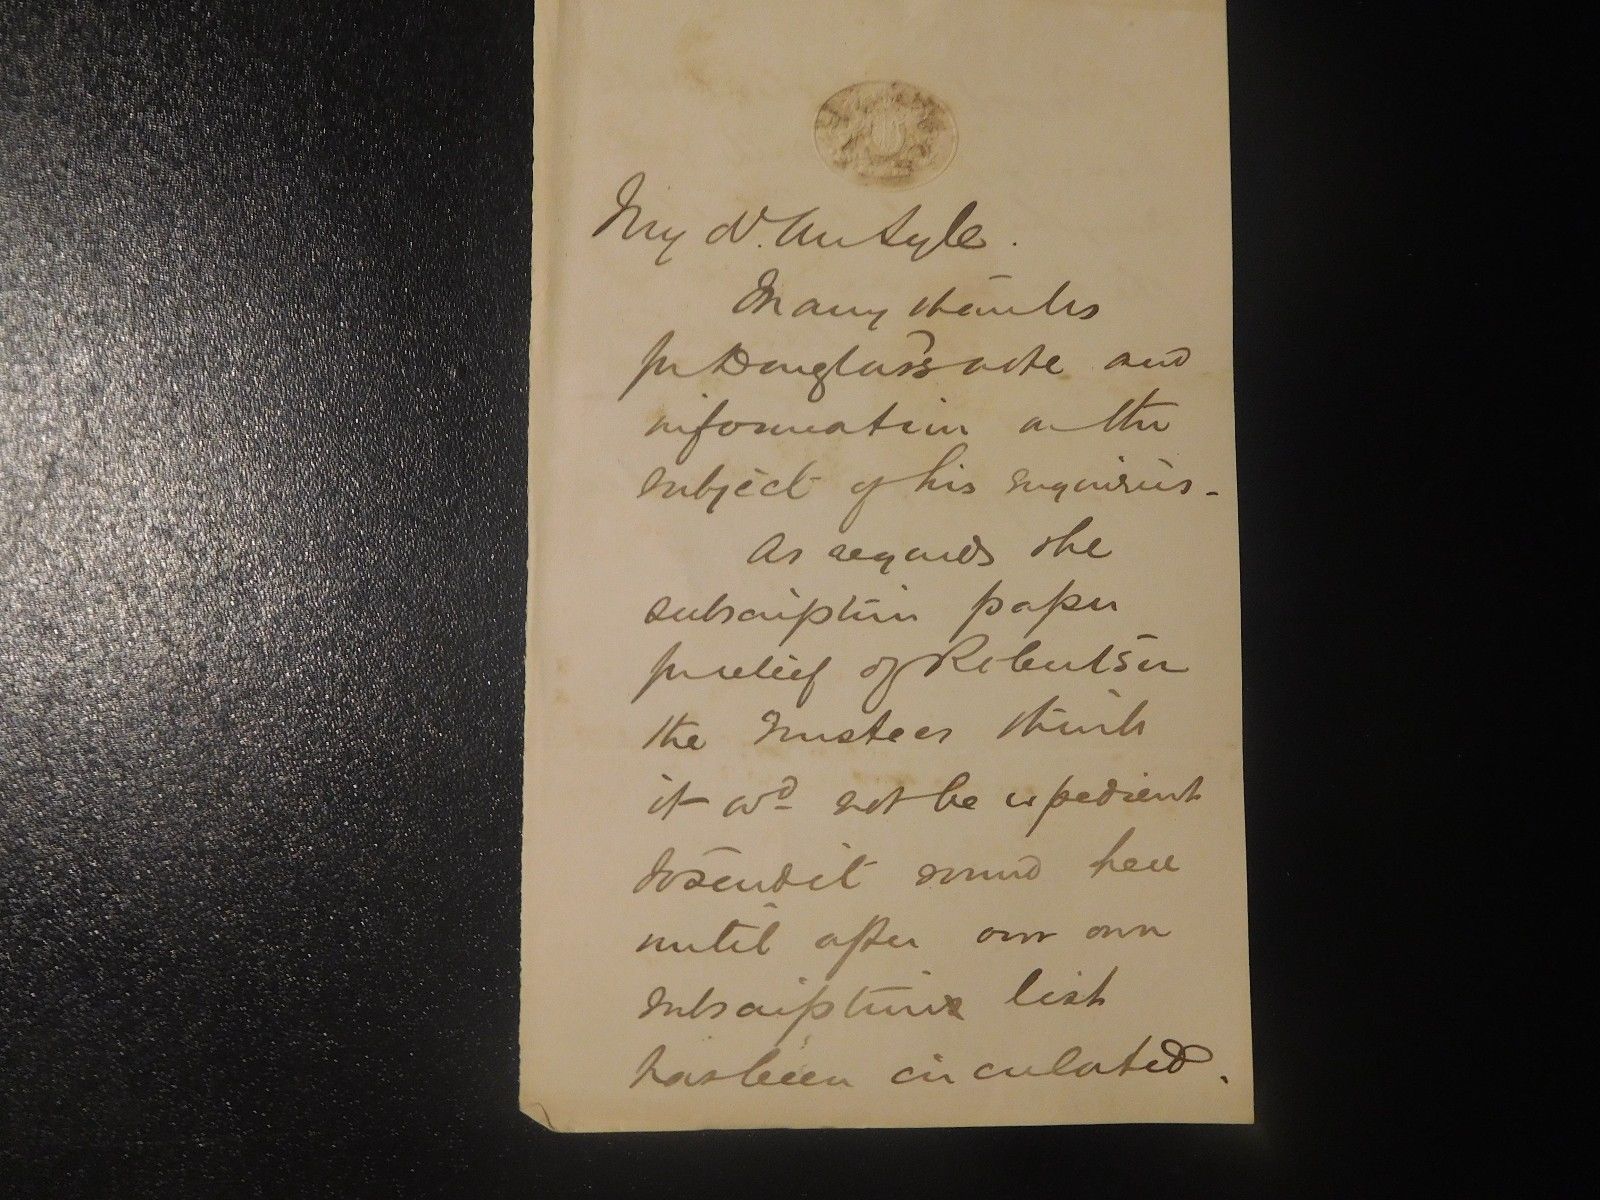 My dr. Mr Syle.
Many thanks
for Douglass's note and
information on the
subject of his enquiries -
As regards the
subscription paper
for relief of Robertson
the Trustees think
it wd not be expedient
to send it round here
until after our own
subscription list
has been circulated.